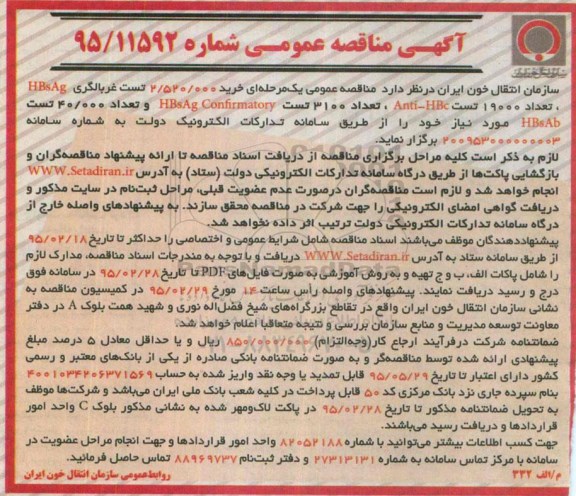 آگهی مناقصه عمومی شماره ۹۵/۱۱۵۹۲
سازمان انتقال خون ایران درنظر دارد مناقصه عمومی یک‌مرحله‌ای خرید ۲/۵۲۰/۰۰۰ تست غربالگری HBsAg
، تعداد ۱۹۰۰۰ تست Anti-HBc ، تعداد ۳۱۰۰ تست HBsAg Confirmatory و تعداد ۴۰/۰۰۰ تست
HBsAb مورد نیاز خود را از طریق سامانه تدارکات الکترونیک دولت به شماره سامانه
۲۰۰۹۵۳۰۰۰۰۰۰۰۳ برگزار نماید.
لازم به ذکر است کلیه مراحل برگزاری مناقصه از دریافت اسناد مناقصه تا ارائه پیشنهاد مناقصه‌گران و
بازگشایی پاکت‌ها از طریق درگاه سامانه تدارکات الکترونیکی دولت (ستاد) به آدرس WWW.Setadiran.ir
انجام خواهد شد و لازم است مناقصه‌گران درصورت عدم عضویت قبلی، مراحل ثبت‌نام در سایت مذکور و
دریافت گواهی امضای الکترونیکی را جهت شرکت در مناقصه محقق سازند. به پیشنهادهای واصله خارج از
درگاه سامانه تدارکات الکترونیکی دولت ترتیب اثر داده نخواهد شد.
پیشنهاددهندگان موظف می‌باشند اسناد مناقصه شامل شرایط عمومی و اختصاصی را حداکثر تا تاریخ ۹۵/۰۲/۱۸
از طریق سامانه ستاد به آدرس WWW.Setadiran.ir دریافت و با توجه به مندرجات اسناد مناقصه، مدارک لازم
را شامل پاکات الف، ب و ج تهیه و به روش آموزشی به صورت فایل‌های PDF تا تاریخ ۹۵/۰۲/۲۸ در سامانه فوق
درج و رسید دریافت نمایند. پیشنهادهای واصله رأس ساعت ۱۴ مورخ ۹۵/۰۲/۲۹ در کمیسیون مناقصه به
نشانی سازمان انتقال خون ایران واقع در تقاطع بزرگراه‌های شیخ فضل‌اله نوری و شهید همت بلوک A در دفتر
معاونت توسعه مدیریت و منابع سازمان بررسی و نتیجه متعاقبا اعلام خواهد شد.
ضمانتنامه شرکت درفرآیند ارجاع کار(وجه‌التزام) ۸۵۰/۰۰۰/۰۰۰ ریال و یا حداقل معادل ۵ درصد مبلغ
پیشنهادی ارائه شده توسط مناقصه‌گر و به صورت ضمانتنامه بانکی صادره از یکی از بانک‌های معتبر و رسمی
کشور دارای اعتبار تا تاریخ ۹۵/۰۵/۲۹ قابل تمدید یا وجه نقد واریز شده به حساب ۴۰۰۱۰۳۴۲۰۶۳۷۱۵۶۹
بنام سپرده جاری نزد بانک مرکزی کد ۵۰ قابل پرداخت در کلیه شعب بانک ملی ایران می‌باشد و شرکت‌ها موظف
به تحویل ضمانتنامه مذکور تا تاریخ ۹۵/۰۲/۲۸ در پاکت لاک‌ومهر شده به نشانی مذکور بلوک C واحد امور
قراردادها و دریافت رسید می‌باشند.
جهت کسب اطلاعات بیشتر می‌توانید با شماره ۸۲۰۵۲۱۸۸ واحد امور قراردادها و جهت انجام مراحل عضویت در
سامانه با مرکز تماس سامانه به شماره ۲۷۳۱۳۱۳۱ و دفتر ثبت‌نام ۸۸۹۶۹۷۳۷ تماس حاصل فرمائید.
م/الف ۳۳۲
روابط‌عمومی سازمان انتقال خون ایران